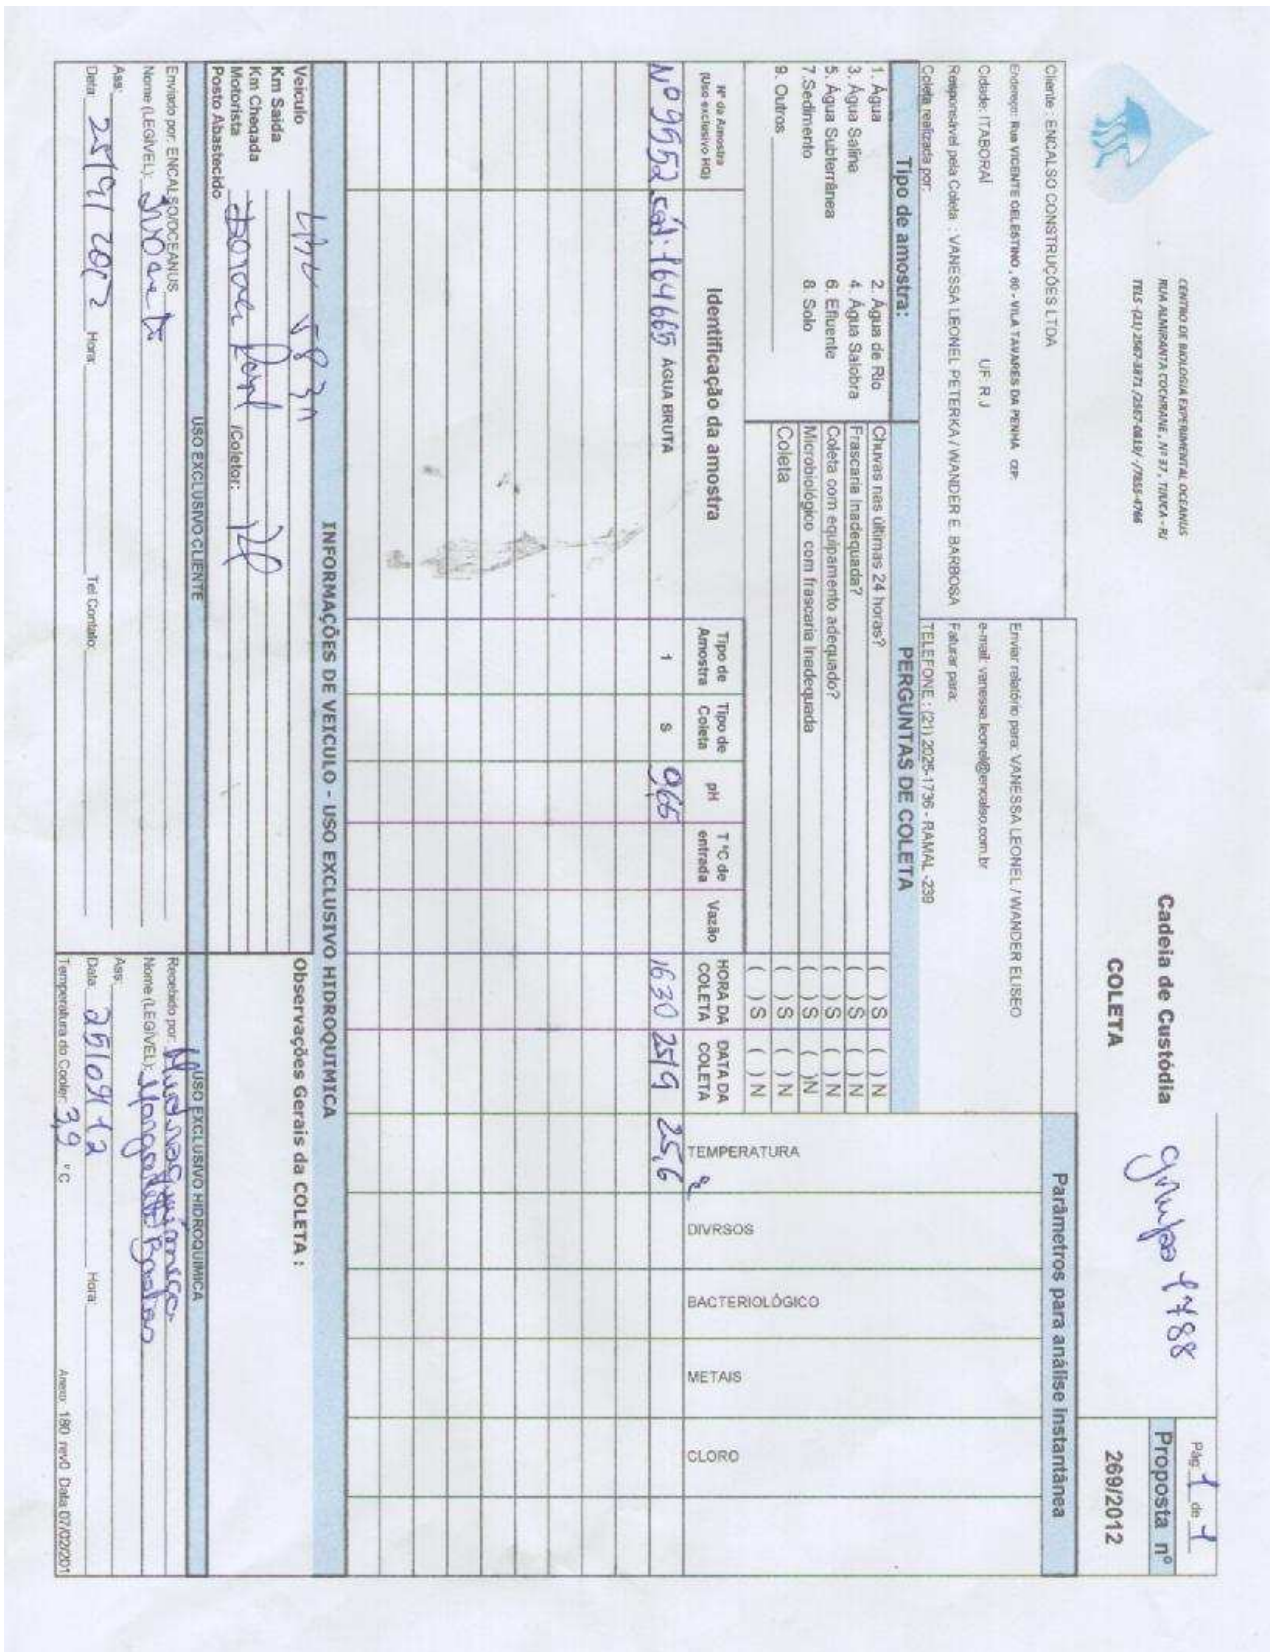 CENTRO DE BIOLOGIA EXPERIMENTAL OCEANUS
RUA ALMIRANTA COCHRANE , Nº 37 , TIJUCA - RJ
TELS -(21) 2567-3871 /2567-0819/ -/7855-4766
Cadeia de Custódia
COLETA
grupo 1788
Pág: 1 de 1
Proposta nº
269/2012
Cliente : ENCALSO CONSTRUÇÕES LTDA
Endereço: Rua VICENTE CELESTINO , 60 - VILA TAVARES DA PENHA CEP:
Cidade: ITABORAÍ UF: RJ
Responsável pela Coleta : VANESSA LEONEL PETERKA / WANDER E. BARBOSA
Coleta realizada por:
Enviar relatório para: VANESSA LEONEL / WANDER ELISEO
e-mail: vanessa.leonel@encalso.com.br
Faturar para:
TELEFONE : (21) 2025-1736 - RAMAL -239
Parâmetros para análise instantânea
Tipo de amostra:
1. Água 2. Água de Rio
3. Água Salina 4. Água Salobra
5. Água Subterrânea 6. Efluente
7.Sedimento 8. Solo
9. Outros
PERGUNTAS DE COLETA
Chuvas nas últimas 24 horas? ( ) S ( ) N
Frascaria Inadequada? ( ) S ( ) N
Coleta com equipamento adequado? ( ) S ( ) N
Microbiológico com frascaria Inadequada ( ) S ( )N
Coleta ( ) S ( ) N
( ) S ( ) N
Nº da Amostra (Uso exclusivo HQ) Identificação da amostra Tipo de Amostra Tipo de Coleta pH T ºC de entrada Vazão HORA DA COLETA DATA DA COLETA TEMPERATURA DIVRSOS BACTERIOLÓGICO METAIS CLORO
Nº 9952 cód: 164665 ÁGUA BRUTA 1 S 9,65 1630 25/9 25,6
INFORMAÇÕES DE VEICULO - USO EXCLUSIVO HIDROQUIMICA
Veiculo 5831
Km Saída
Km Chegada
Motorista /Coletor:
Posto Abastecido
Observações Gerais da COLETA :
USO EXCLUSIVO CLIENTE
Enviado por: ENCALSO/OCEANUS
Nome (LEGÍVEL):
Ass:
Data: 25/9/2012 Hora: Tel Contato:
USO EXCLUSIVO HIDROQUIMICA
Recebido por:
Nome (LEGÍVEL): Bastos
Ass:
Data: 25/09/12 Hora:
Temperatura do Cooler: 3,9 °C
Anexo: 180 rev0 Data 07/02/201